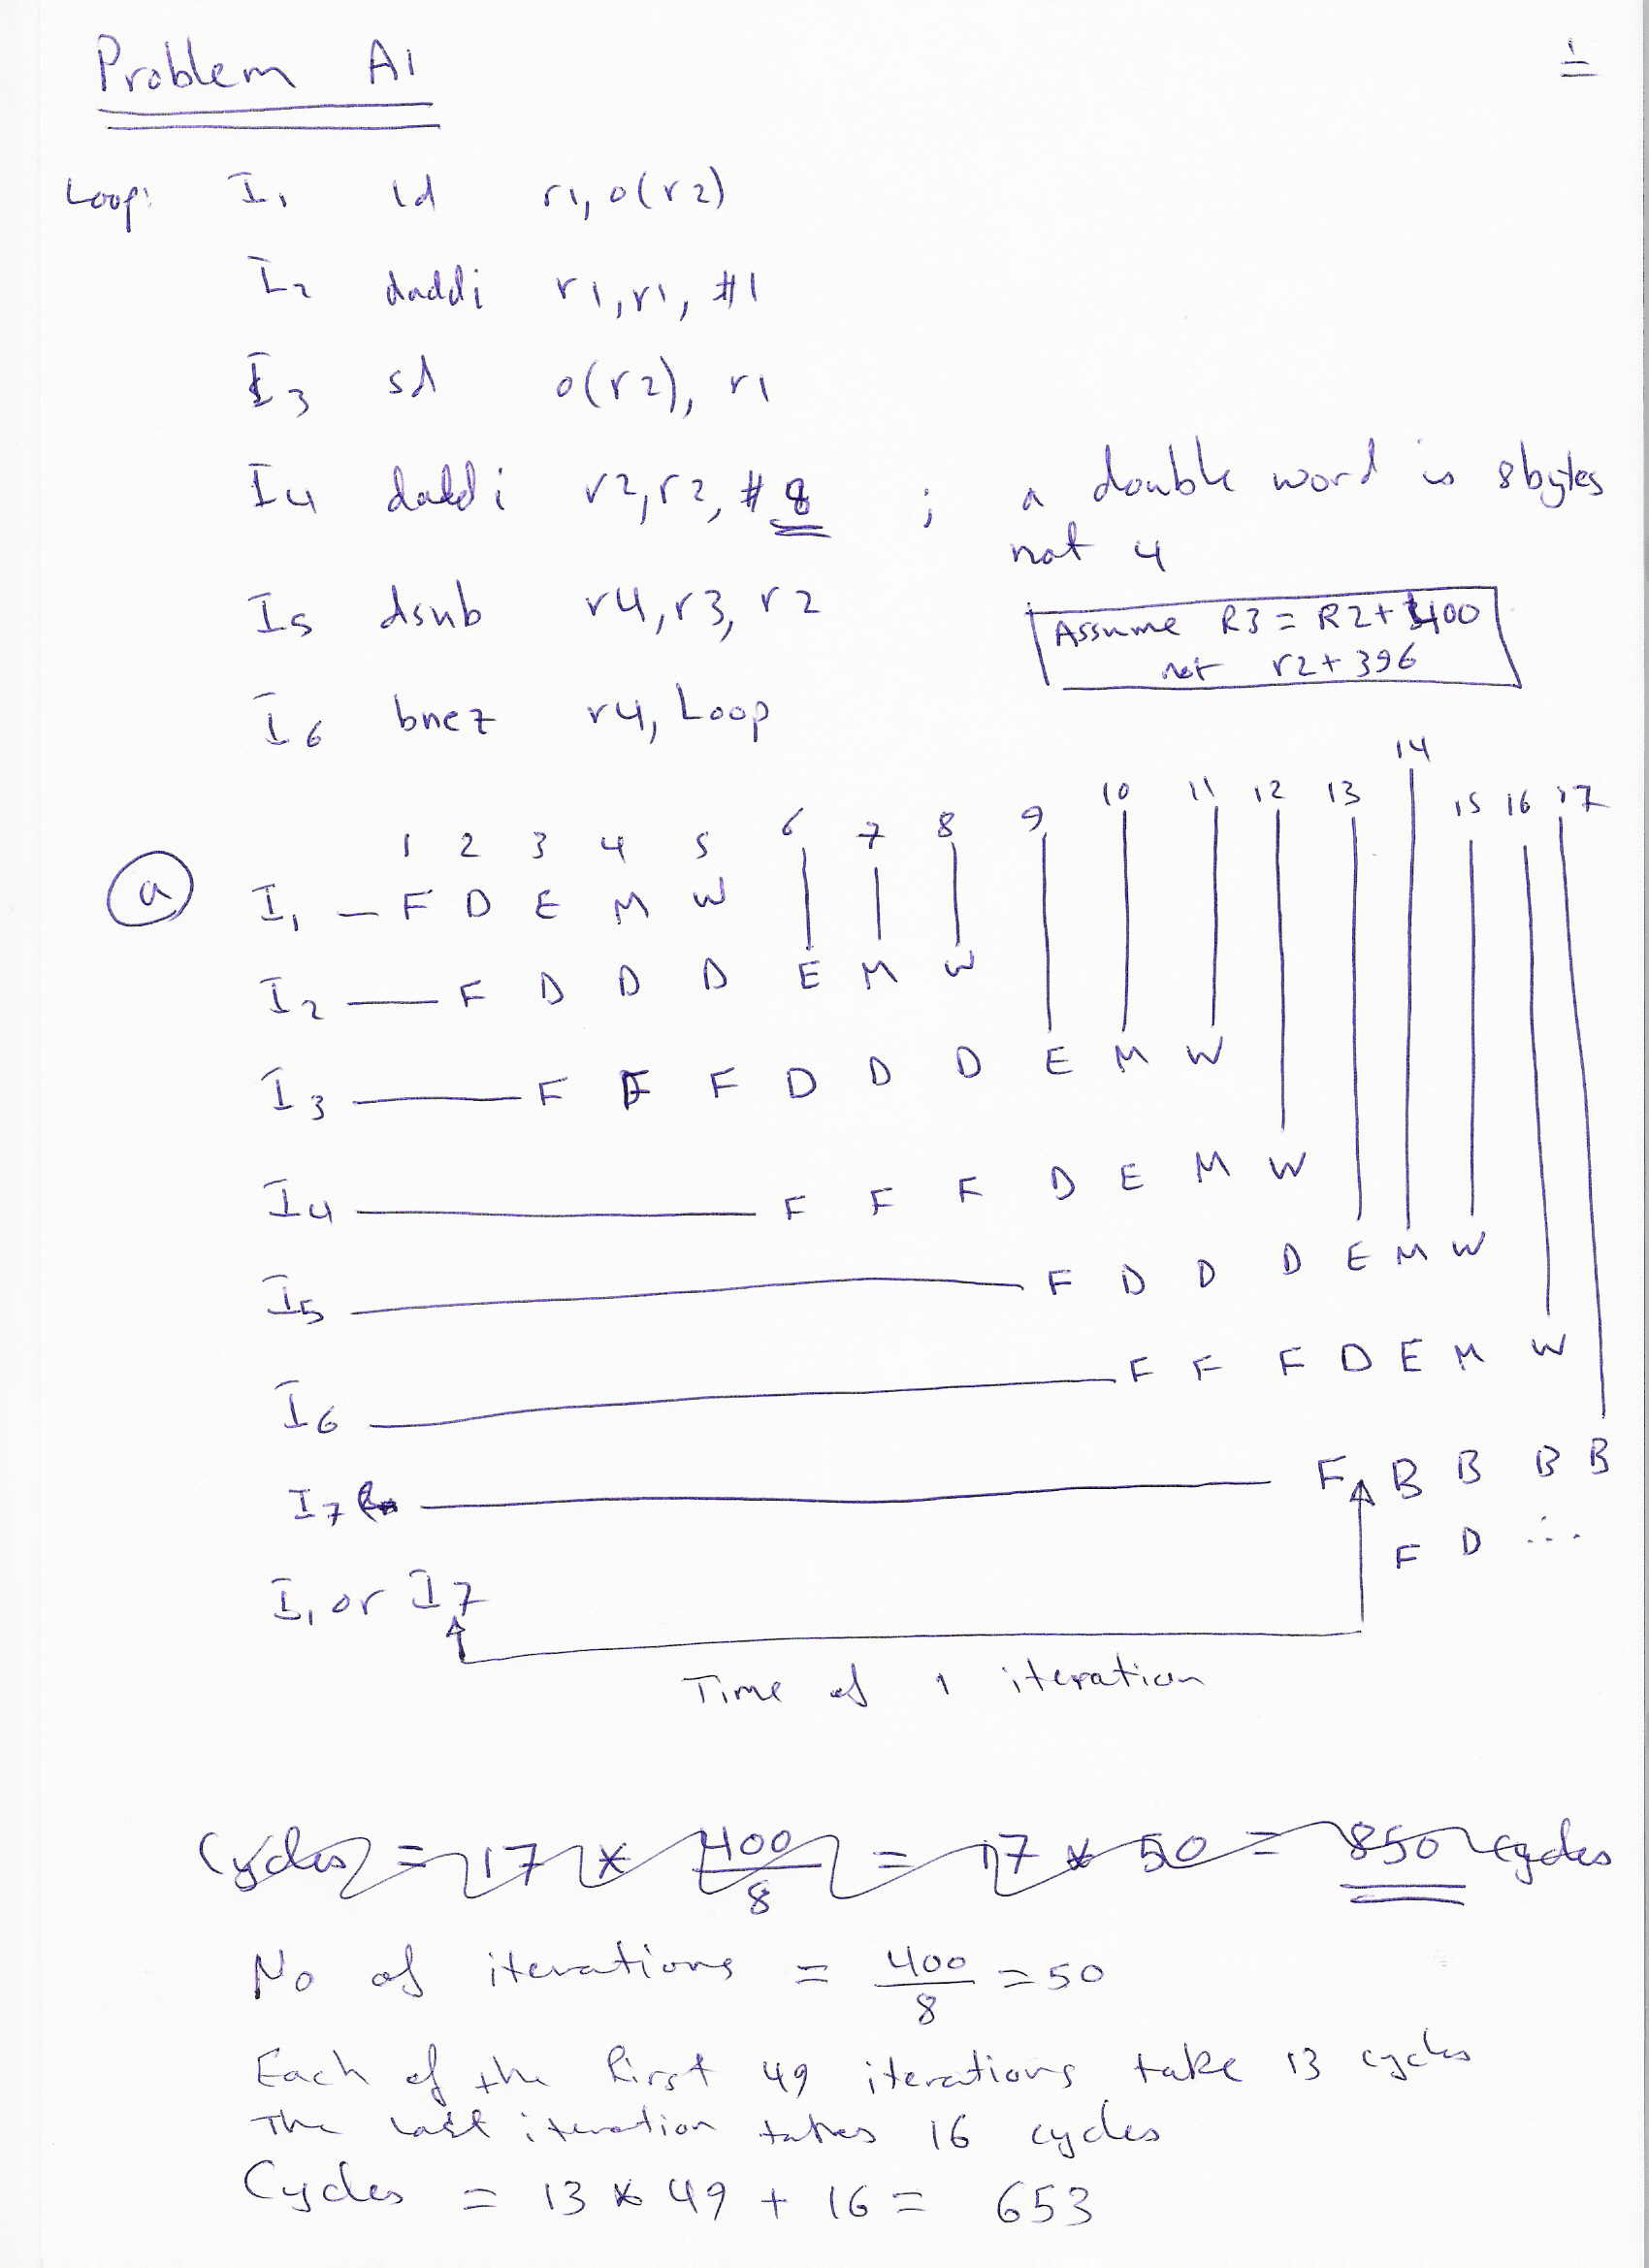 Problem A1
1
Loop: I1 ld r1, 0(r2)
I2 daddi r1, r1, #1
I3 sd 0(r2), r1
I4 daddi r2, r2, #8 ; a double word is 8bytes
not 4
I5 dsub r4, r3, r2
Assume R3 = R2+400
not r2+396
I6 bnez r4, Loop
14
10 11 12 13 15 16 17
1 2 3 4 5 6 7 8 9
a I1 F D E M W
I2 F D D D E M W
I3 F F F D D D E M W
I4 F F F D E M W
I5 F D D D E M W
I6 F F F D E M W
I7 F B B B B
F D ...
I1 or I7
Time of 1 iteration
Cycles = 17 * 400/8 = 17 * 50 = 850 cycles
No of iterations = 400/8 = 50
Each of the first 49 iterations take 13 cycles
The last iteration takes 16 cycles
Cycles = 13 * 49 + 16 = 653